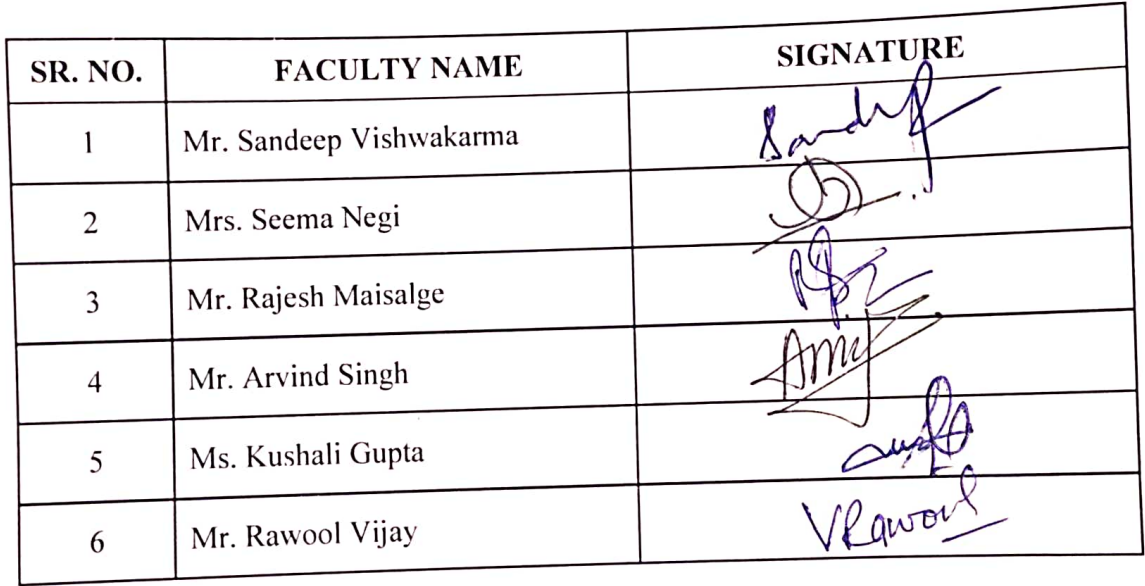 SR. NO. FACULTY NAME SIGNATURE
1 Mr. Sandeep Vishwakarma
2 Mrs. Seema Negi
3 Mr. Rajesh Maisalge
4 Mr. Arvind Singh
5 Ms. Kushali Gupta
6 Mr. Rawool Vijay VRawool